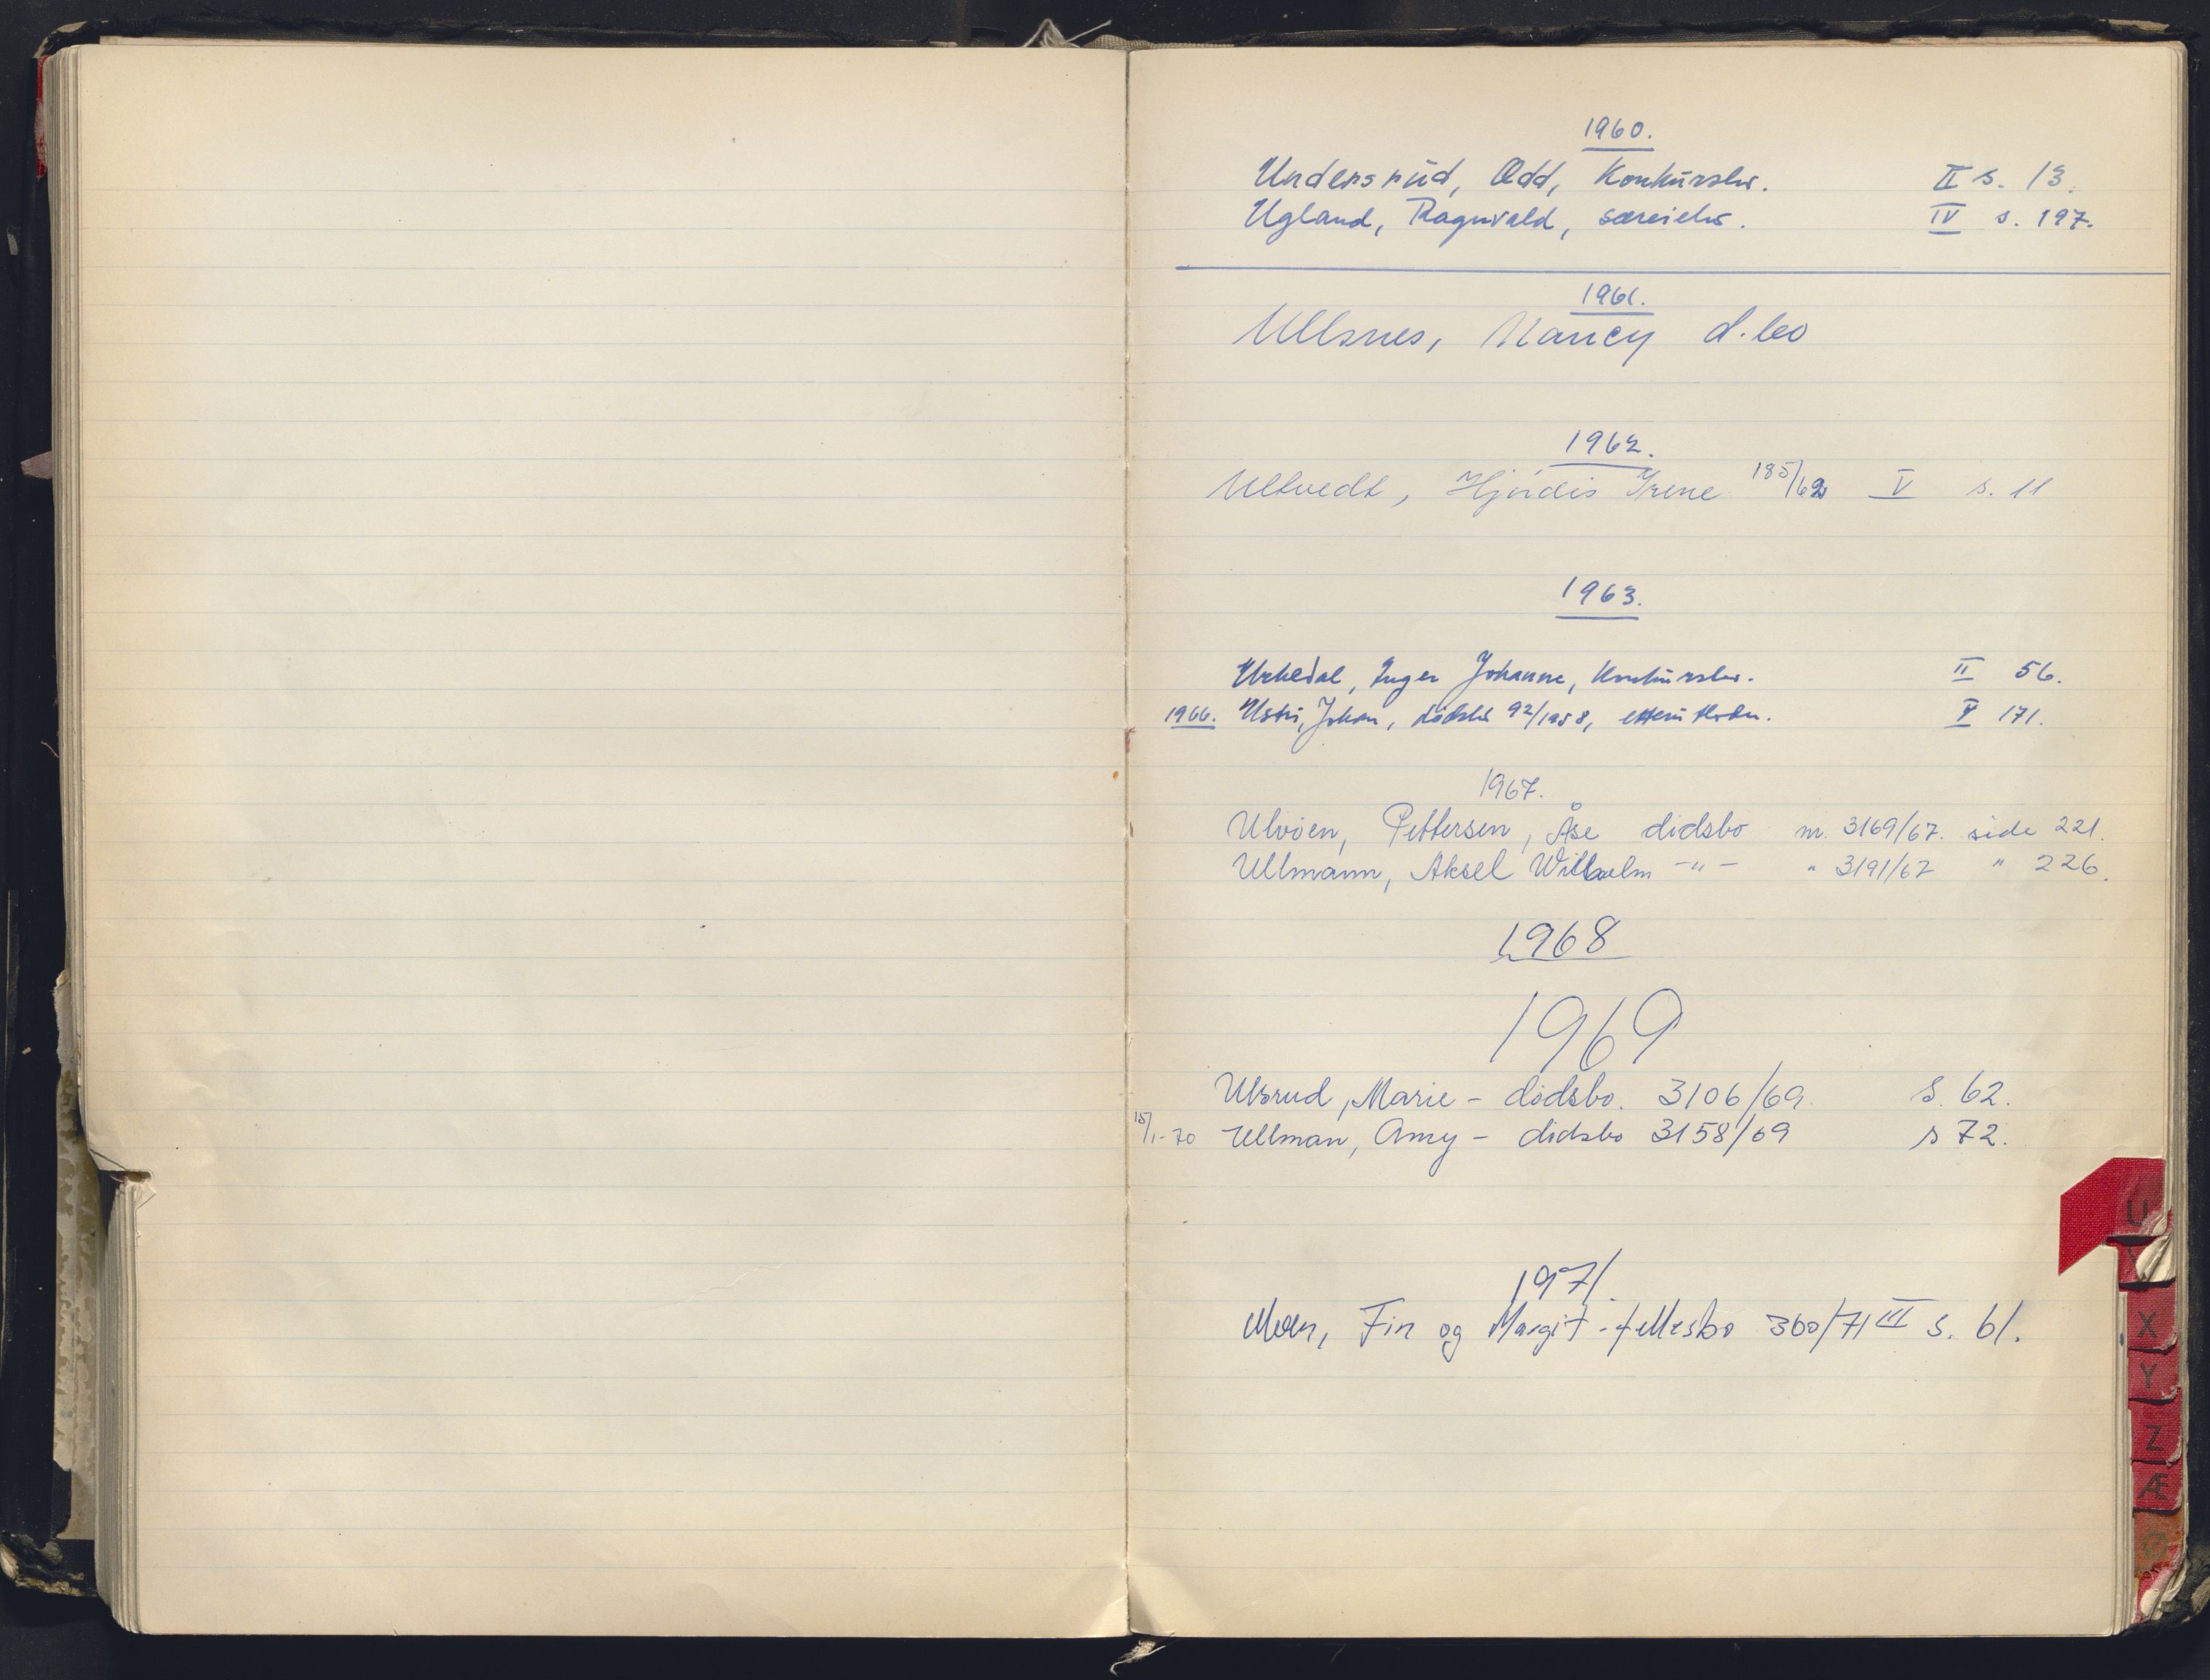 1960.
Undersrud, Odd, Konkursbo. II s. 13.
Ugland, Ragnvald, særeiebo. IV s. 197.
1961.
Ullsnes, Nancy d.bo
1962.
Ultvedt, Hjördis Irene 185/62 V s. 11
1963.
Urkedal, Inger Johanne, Konkursbo. II 56.
1966. Johan, dødsbo 92/1958, V 171.
1967.
Ulvøen, Pettersen, Åse dødsbo nr. 3169/67. side 221.
Ullmann, Aksel Wilhelm -"- " 3191/67 " 226.
1968
1969
Ulsrud, Marie - dødsbo. 3106/69 S. 62.
15/1-70 Ullman, Amy - dødsbo 3158/69 s 72.
1971.
Fin og Margit - fellesbo 360/71 III s. 61.
U
X
Y
Z
Æ
Ø